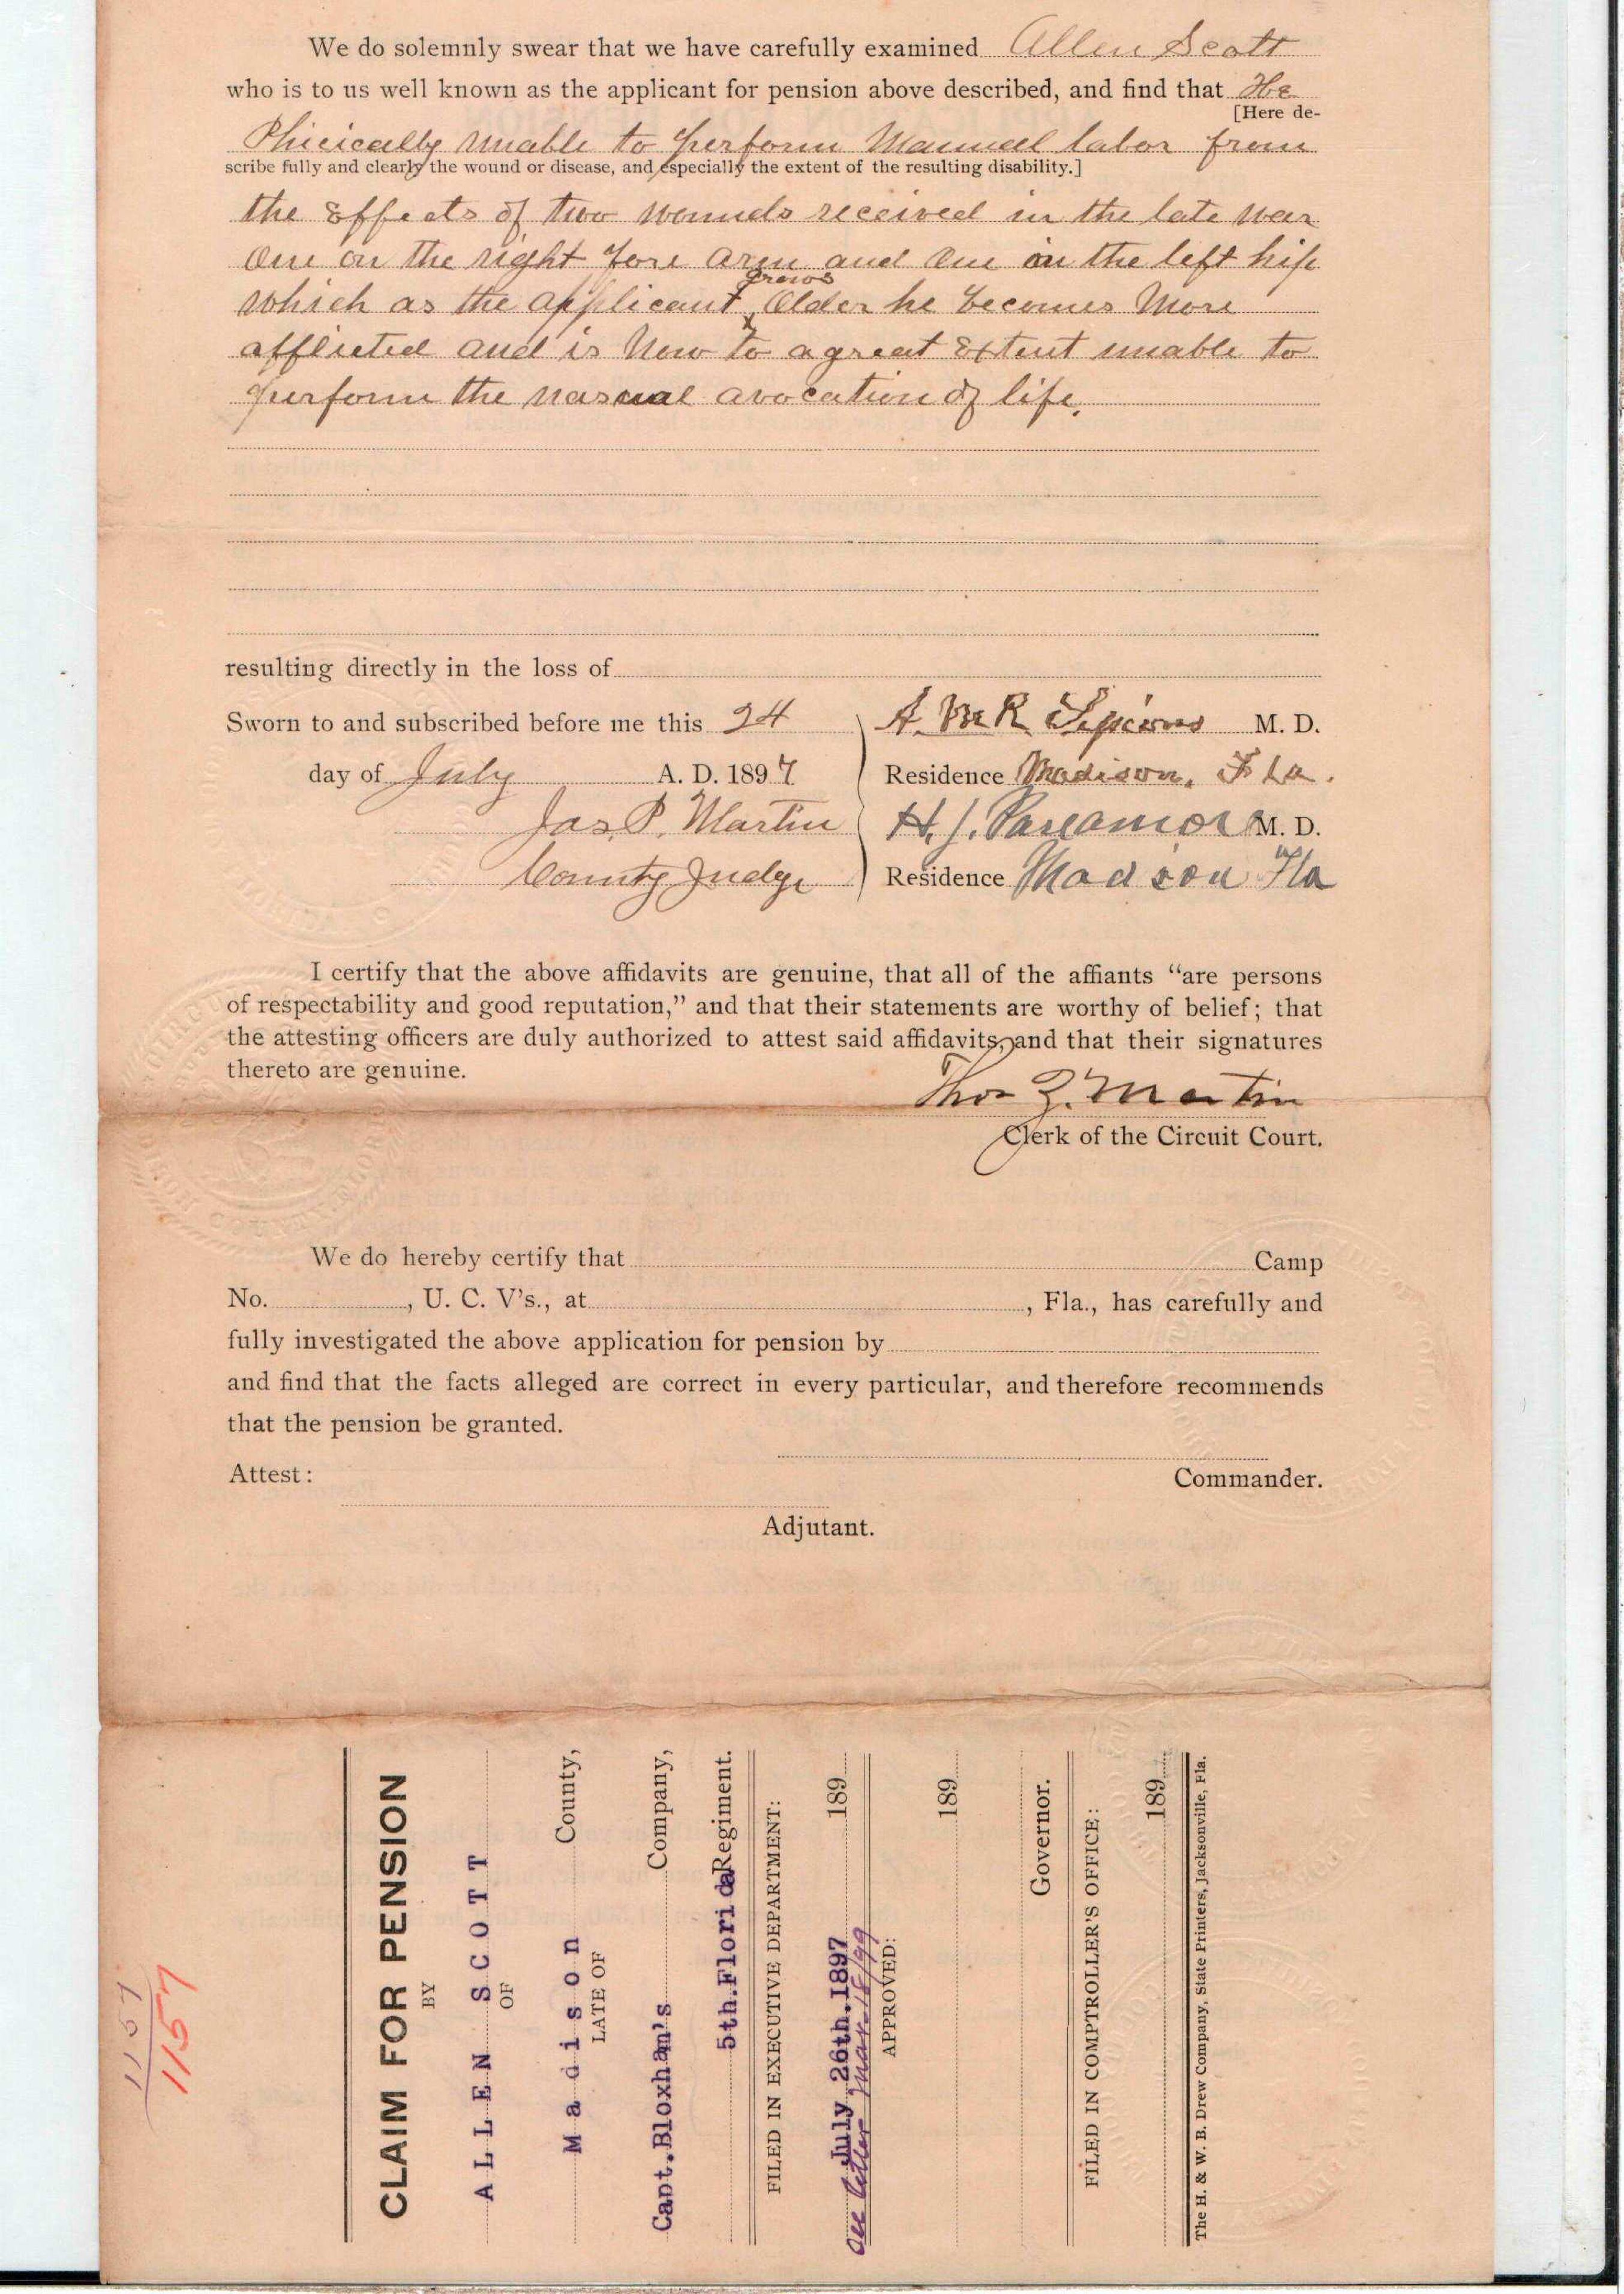 We do solemnly swear that we have carefully examined Allen Scott
who is to us well known as the applicant for pension above described, and find that He
[Here de-
Phicically unable to perform Manuel labor from
scribe fully and clearly the wound or disease, and especially the extent of the resulting disability.]
the Effects of two wounds received in the late war
One on the right fore arm and One in the left hip
grows
which as the applicant Older he becomes More
afflicted and is Now to a great Extent unable to
perform the avocation of life.
resulting directly in the loss of
Sworn to and subscribed before me this 24
A M. D.
day of July A. D. 1897
Residence Madison, Fla.
Jas. P. Martin
H. J. M. D.
County Judge
Residence Madison Fla
I certify that the above affidavits are genuine, that all of the affiants "are persons
of respectability and good reputation," and that their statements are worthy of belief; that
the attesting officers are duly authorized to attest said affidavits, and that their signatures
thereto are genuine.
Thos Martin
Clerk of the Circuit Court.
We do hereby certify that Camp
No. , U. C. V's., at , Fla., has carefully and
fully investigated the above application for pension by
and find that the facts alleged are correct in every particular, and therefore recommends
that the pension be granted.
Attest: Commander.
Adjutant.
1157
1157
CLAIM FOR PENSION
BY
ALLEN SCOTT
OF
Madison County,
LATE OF
Capt. Bloxham's Company,
5th. Florida Regiment.
FILED IN EXECUTIVE DEPARTMENT:
July 26th. 1897 189
See letter Mar. 15/99
APPROVED:
189
Governor.
FILED IN COMPTROLLER'S OFFICE:
189
The H. & W. B. Drew Company, State Printers, Jacksonville, Fla.